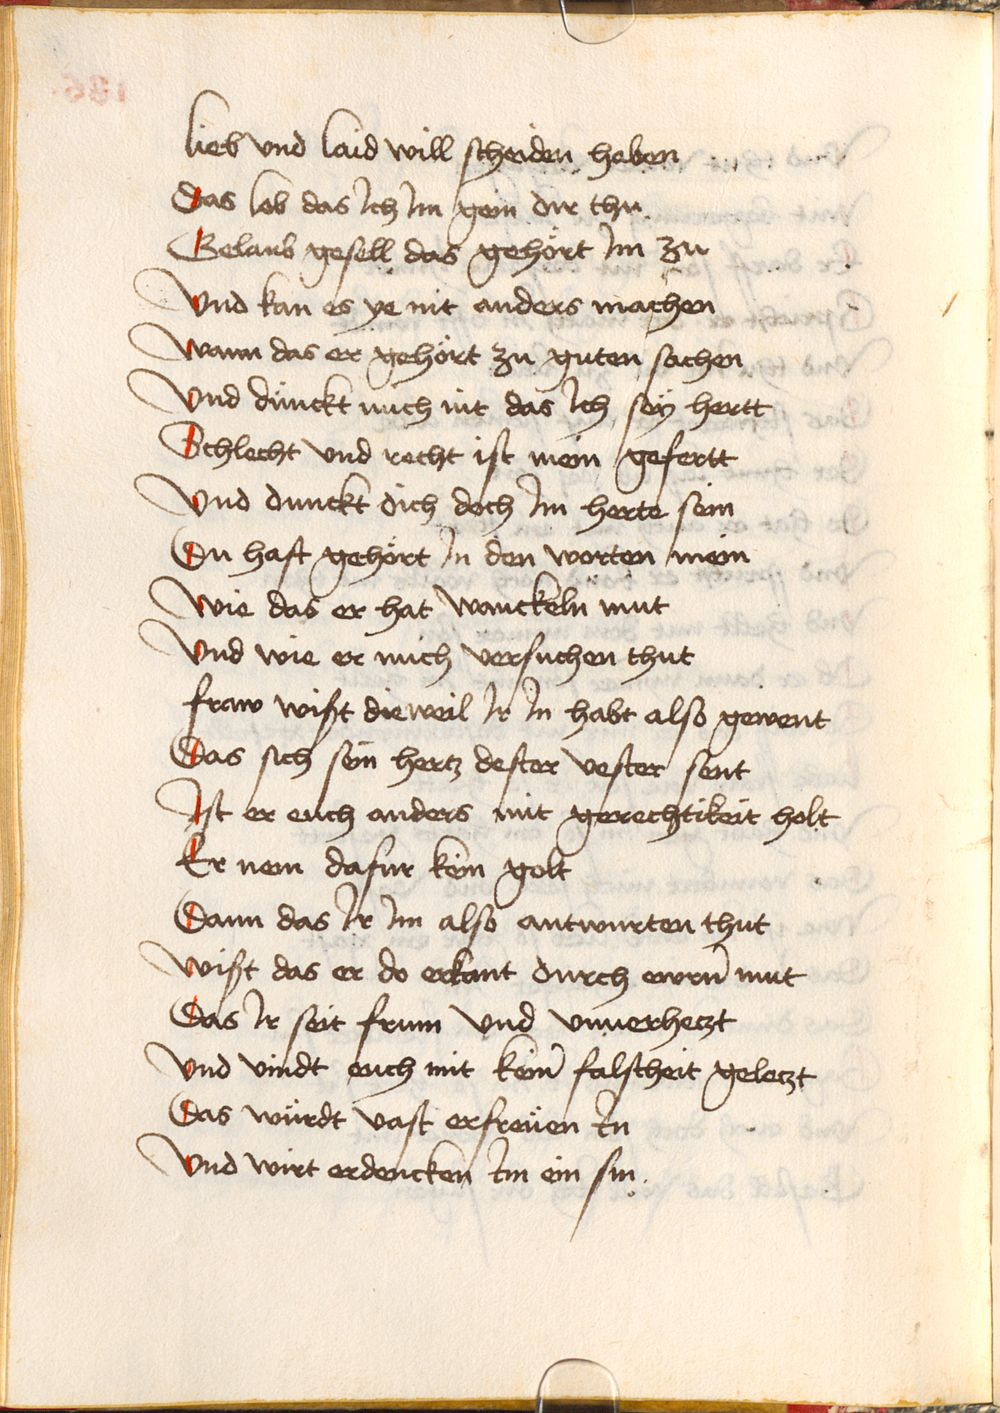 lieb vnd laid will scheiden haben
Das lob das Ich Im gein dir thu
Gelaub gesell das gehört Im zu
Vnd kan es ye nit anders machen
Wann das er gehört zu guten sachen
Vnd dünckt mich nit das Ich sey hertt
Schlecht vnd recht ist mein gefertt
Vnd dunckt dich doch Im herte sein
Du hast gehört In den worten mein
Wie das er hat wanckeln mut
Vnd wie er mich versuchen thut
fraw wißt dieweil Ir In habt also gewent
Das sich sein hertz dester vester sent
Ist er euch anders mit gerechtikeit holt
Er nem dafur kein golt
Dann das Ir Im also antwurten thut
Wißt das er do erkant durch ewrn̄ mut
Das Ir seit frum vnd vnuerheczt
Vnd vindt euch mit kein̄ falscheit geleczt
Das würdt vast erfreüen In
Vnd wirt erdencken Im ein sin.